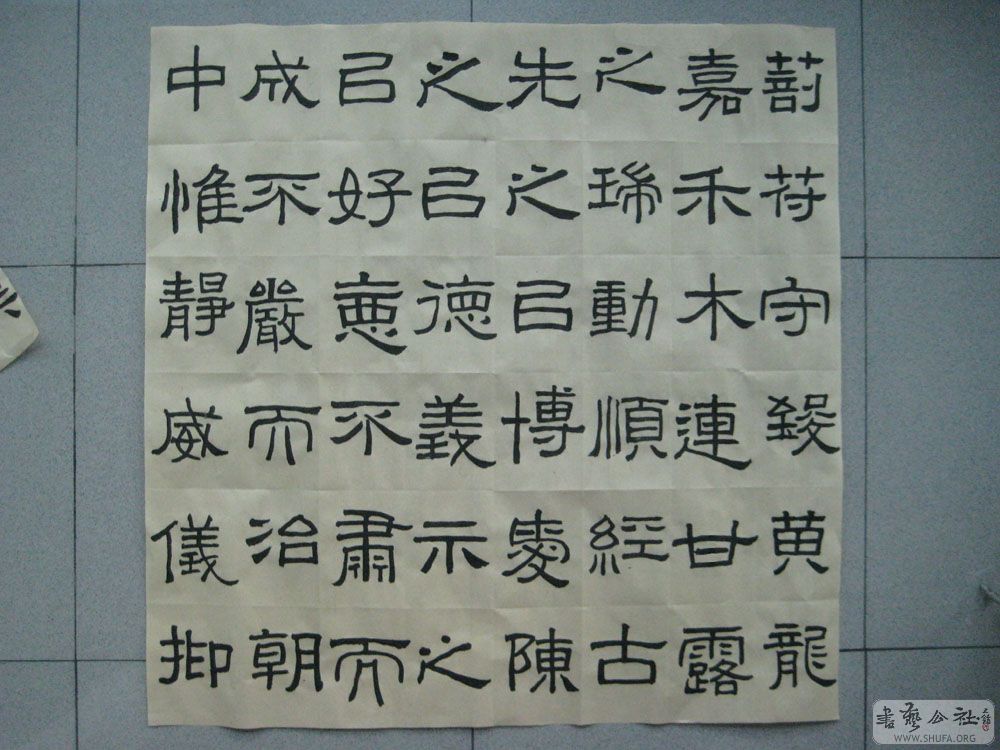 剖苻守致黄龍
嘉禾木連甘露
之瑞動順經古
先之㠯博愛陳
之㠯德義示之
㠯好惡不肅而
成不嚴而治朝
中惟靜威儀抑
書藝公社
WWW.SHUFA.ORG